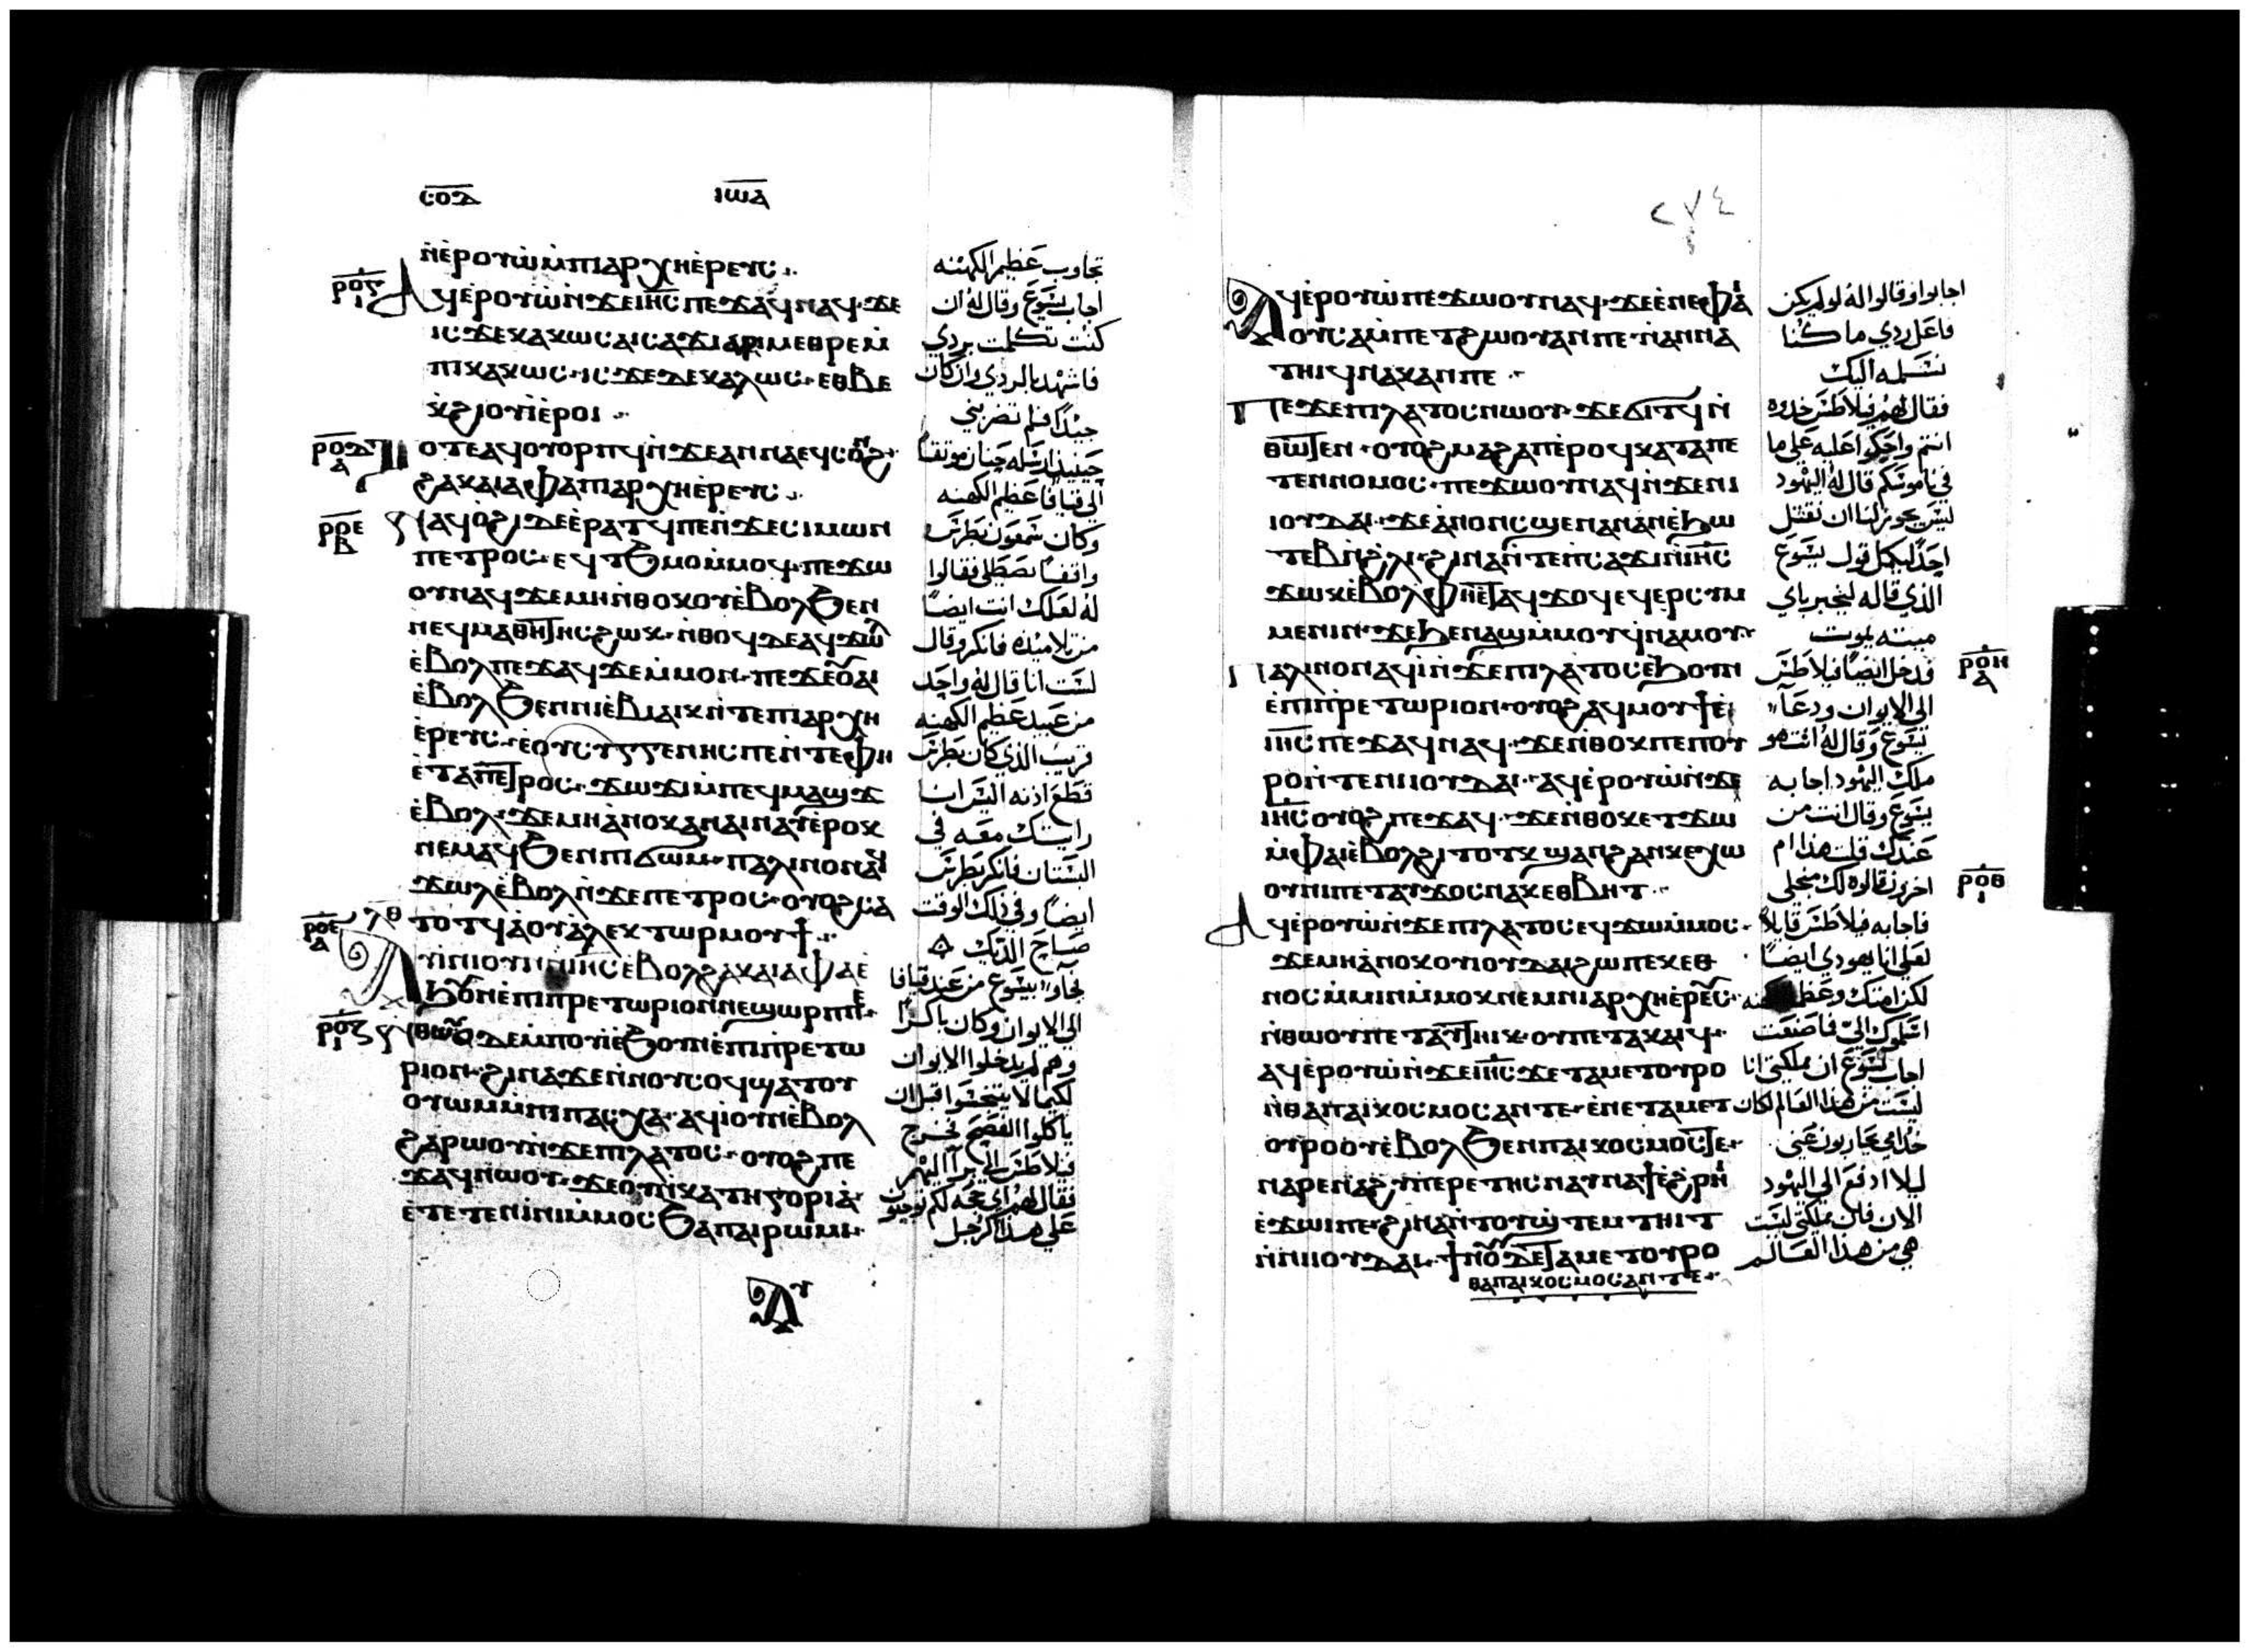 ⲥⲟⲇ ⲓⲱⲁ
ⲛ̀ⲉⲣⲟⲩⲱ̀ ⲙ̀ⲡⲓⲁⲣⲭⲏⲉ̀ⲣⲉⲩⲥ
ⲁϥⲉ̀ⲣⲟⲩⲱ̀ ⲛ̀ϫⲉ ⲓⲏ̅ⲥ̅ ⲡⲉϫⲁϥ ⲛⲁϥ ϫⲉ
ⲓⲥϫⲉ ⲕⲁⲕⲱⲥ ⲁⲓⲥⲁϫⲓ ⲁⲣⲓⲙⲉⲑⲣⲉ ⲙ̀
ⲡⲓⲕⲁⲕⲱⲥ ⲓⲥϫⲉ ⲇⲉ ⲕⲁⲗⲱⲥ ⲉⲑⲃⲉ
ⲭ̀ϩⲓⲟⲩⲓ̀ ⲉ̀ⲣⲟⲓ
ⲧⲟⲧⲉ ⲁϥⲟⲩⲟⲣⲡϥ ⲛ̀ϫⲉ ⲁⲛⲛⲁ ⲉϥⲥⲟⲛϩ
ϩⲁ ⲕⲁⲓⲁⲫⲁ ⲡⲓⲁⲣⲭⲏⲉ̀ⲣⲉⲩⲥ
ⲛⲁϥⲟ̀ϩⲓ ⲇⲉ ⲉ̀ⲣⲁⲧϥ ⲡⲉ ⲛ̀ϫⲉ ⲥⲓⲙⲱⲛ
ⲡⲉⲧⲣⲟⲥ ⲉϥⲧϧⲙⲟ ⲙ̀ⲙⲟϥ ⲡⲉϫⲱ
ⲟⲩ ⲛⲁϥ ϫⲉ ⲙⲏ ⲛ̀ⲑⲟⲕ ⲟⲩⲉ̀ⲃⲟⲗ ϧⲉⲛ
ⲛⲉϥⲙⲁⲑⲏⲧⲏⲥ ϩⲱⲕ ⲛ̀ⲑⲟϥ ⲇⲉ ⲁϥϫⲱⲗ
ⲉ̀ⲃⲟⲗ ⲡⲉϫⲁϥ ϫⲉ ⲙ̀ⲙⲟⲛ ⲡⲉϫⲉ ⲟⲩⲁⲓ
ⲉ̀ⲃⲟⲗ ϧⲉⲛ ⲛⲓⲉ̀ⲃⲓⲁⲓⲕ ⲛ̀ⲧⲉ ⲡⲓⲁⲣⲭⲏ
ⲉ̀ⲣⲉⲩⲥ ⲉ̀ⲟⲩⲥⲩⲅⲅⲉⲛⲏⲥ ⲡⲉ ⲛ̀ⲧⲉ ⲫⲏ
ⲉ̀ⲧⲁ ⲡⲉⲧⲣⲟⲥ ϫⲱϫⲓ ⲙ̀ⲡⲉϥⲙⲁϣϫ
ⲉ̀ⲃⲟⲗ ϫⲉ ⲙⲏ ⲁ̀ⲛⲟⲕ ⲁⲛ ⲁⲓⲛⲁⲩ ⲉ̀ⲣⲟⲕ
ⲛⲉⲙⲁϥ ϧⲉⲛ ⲡⲓϭⲱⲙ ⲡⲁⲗⲓⲛ ⲟⲛ ⲁϥ
ϫⲱⲗ ⲉ̀ⲃⲟⲗ ⲛ̀ϫⲉ ⲡⲉⲧⲣⲟⲥ ⲟⲩⲟϩ ⲥⲁ
ⲧⲟⲧϥ ⲁ̀ ⲟⲩⲁ̀ⲗⲉⲕⲧⲱⲣ ⲙⲟⲩϯ
ⲁⲩⲓ̀ⲛⲓ ⲟⲩⲛ ⲛ̀ⲓⲏ̅ⲥ̅ ⲉ̀ⲃⲟⲗ ϩⲁ ⲕⲁⲓⲁⲫⲁ ⲉ̀
ϧⲟⲩⲛ ⲉ̀ⲡⲓⲡⲣⲉⲧⲱⲣⲓⲟⲛ ⲛⲉ ϣⲱⲣⲡ ⲡⲉ
ⲛ̀ⲑⲱⲟⲩ ⲇⲉ ⲙ̀ⲡⲟⲩⲓ̀ ⲉ̀ϧⲟⲩⲛ ⲉ̀ⲡⲓⲡⲣⲉⲧⲱ
ⲣⲓⲟⲛ ϩⲓⲛⲁ ϫⲉ ⲛ̀ⲛⲟⲩⲥⲟϥ ϣⲁⲧⲟⲩ
ⲟⲩⲱⲙ ⲙ̀ⲡⲓⲡⲁⲥⲭⲁ ⲁϥⲓ̀ ⲟⲩⲛ ⲉ̀ⲃⲟⲗ
ϩⲁⲣⲱⲟⲩ ⲛ̀ϫⲉ ⲡⲓⲗⲁⲧⲟⲥ ⲟⲩⲟϩ ⲡⲉ
ϫⲁϥ ⲛⲱⲟⲩ ϫⲉ ⲟⲩ ⲛ̀ⲕⲁⲧⲏⲅⲟⲣⲓⲁ
ⲉ̀ⲧⲉⲧⲉⲛⲓ̀ⲛⲓ ⲙ̀ⲙⲟⲥ ϧⲁ ⲡⲁⲓⲣⲱⲙⲓ
ⲁⲩ
تجاوب عظيم الكهنه
اجاب يسوع وقال له ان
كنت تكلمت بردي
فاشهد بالردي وان كان
جيدا فلم تضربني
حينيذ ارسله حنان موثقا
الي قيافا عظيم الكهنه
وكان سمعون بطرس
واقفا يصطلي فقالوا
له لعلك انت ايضا
من تلاميذه فانكر وقال
لست انا قال له واحد
من عبيد عظيم الكهنه
قريب الذي كان بطرس
قطع اذنه اليس انا
رايتك معه في
البستان فانكر بطرس
ايضا وفي ذلك الوقت
صاح الديك
فجاوا بيسوع من عند قيافا
الي الايوان وكان باكرا
وهم لم يدخلوا الايوان
لكيما لا يتنجسوا قبل ان
ياكلوا الفصح فخرج
فيلاطس الي برا اليهم
فقال لهم اي حجه لكم توجبون
علي هذا الرجل
ⲣⲟⲋ
ⲣⲟⲇ
ⲣⲟⲉ
ⲣⲟⲍ
ⲗⲑ
٢٧٤
ⲁⲩⲉ̀ⲣⲟⲩⲱ̀ ⲡⲉϫⲱⲟⲩ ⲛⲁϥ ϫⲉ ⲉ̀ⲛⲉ ⲫⲁ
ⲟⲩⲥⲁⲙⲡⲉⲧϩⲱⲟⲩ ⲁⲛ ⲡⲉ ⲛⲁⲛⲛⲁ
ⲧⲏⲓϥ ⲛⲁⲕ ⲁⲛ ⲡⲉ
ⲡⲉϫⲉ ⲡⲓⲗⲁⲧⲟⲥ ⲛⲱⲟⲩ ϫⲉ ϭⲓⲧϥ ⲛ̀
ⲑⲱⲧⲉⲛ ⲟⲩⲟϩ ⲙⲁϩⲁⲡ ⲉ̀ⲣⲟϥ ⲕⲁⲧⲁ ⲡⲉ
ⲧⲉⲛⲛⲟⲙⲟⲥ ⲡⲉϫⲱⲟⲩ ⲛⲁϥ ⲛ̀ϫⲉ ⲛⲓ
ⲓⲟⲩⲇⲁⲓ ϫⲉ ⲁ̀ⲛⲟⲛ ⲥϣⲉ ⲛⲁⲛ ⲁⲛ ⲉ̀ϧⲱ
ⲧⲉⲃ ⲛ̀ϩ̀ⲗⲓ ϩⲓⲛⲁ ⲛ̀ⲧⲉ ⲡⲥⲁϫⲓ ⲛ̀ⲓⲏ̅ⲥ̅
ϫⲱⲕ ⲉ̀ⲃⲟⲗ ⲫⲏⲉ̀ⲧⲁϥϫⲟϥ ⲉϥⲉⲣⲥⲩⲙ
ⲙⲉⲛⲓⲛ ϫⲉ ϧⲉⲛ ⲁϣ ⲙ̀ⲙⲟⲩ ϥ̀ⲛⲁⲙⲟⲩ
ⲡⲁⲗⲓⲛ ⲟⲛ ⲁϥⲓ̀ ⲛ̀ϫⲉ ⲡⲓⲗⲁⲧⲟⲥ ⲉ̀ϧⲟⲩⲛ
ⲉ̀ⲡⲓⲡⲣⲉⲧⲱⲣⲓⲟⲛ ⲟⲩⲟϩ ⲁϥⲙⲟⲩϯ ⲉ̀
ⲓⲏ̅ⲥ̅ ⲡⲉϫⲁϥ ⲛⲁϥ ϫⲉ ⲛ̀ⲑⲟⲕ ⲡⲉ ⲡⲟⲩ
ⲣⲟ ⲛ̀ⲧⲉ ⲛⲓⲓⲟⲩⲇⲁⲓ ⲁϥⲉ̀ⲣⲟⲩⲱ̀ ⲛ̀ϫⲉ
ⲓⲏ̅ⲥ̅ ⲟⲩⲟϩ ⲡⲉϫⲁϥ ϫⲉ ⲛ̀ⲑⲟⲕ ⲉⲧϫⲱ
ⲙ̀ⲫⲁⲓ ⲉ̀ⲃⲟⲗ ϩⲓⲧⲟⲧⲕ ϣⲁⲛ ϩⲁⲛⲕⲉⲭⲱ
ⲟⲩⲛⲓ ⲡⲉⲧⲁⲩϫⲟⲥ ⲛⲁⲕ ⲉⲑⲃⲏⲧ
ⲁϥⲉ̀ⲣⲟⲩⲱ̀ ⲛ̀ϫⲉ ⲡⲓⲗⲁⲧⲟⲥ ⲉϥϫⲱ ⲙ̀ⲙⲟⲥ
ϫⲉ ⲙⲏ ⲁ̀ⲛⲟⲕ ⲟⲩⲓⲟⲩⲇⲁⲓ ϩⲱ ⲡⲉⲕⲉⲑ
ⲛⲟⲥ ⲙ̀ⲙⲓⲛ ⲙ̀ⲙⲟⲕ ⲛⲉⲙ ⲛⲓⲁⲣⲭⲏⲉ̀ⲣⲉⲩⲥ
ⲛ̀ⲑⲱⲟⲩ ⲡⲉⲧⲁⲩⲧⲏⲓⲕ ⲟⲩ ⲡⲉⲧⲁⲕⲁⲓϥ
ⲁϥⲉ̀ⲣⲟⲩⲱ̀ ⲛ̀ϫⲉ ⲓⲏ̅ⲥ̅ ϫⲉ ⲧⲁⲙⲉⲧⲟⲩⲣⲟ
ⲛ̀ⲑⲁ ⲡⲁⲓⲕⲟⲥⲙⲟⲥ ⲁⲛ ⲧⲉ ⲉ̀ⲛⲉ ⲧⲁⲙⲉⲧ
ⲟⲩⲣⲟ ⲟⲩⲉ̀ⲃⲟⲗ ϧⲉⲛ ⲡⲁⲓⲕⲟⲥⲙⲟⲥ ⲧⲉ
ⲛⲁⲣⲉ ⲛⲁϩⲩⲡⲉⲣⲉⲧⲏⲥ ⲛⲁⲩⲛⲁϯ ⲉ̀ϩⲣⲏⲓ
ⲉ̀ϫⲱⲓ ⲡⲉ ϩⲓⲛⲁ ⲛ̀ⲧⲟⲩϣ̀ⲧⲉⲙⲧⲏⲓⲧ
ⲛ̀ⲛⲓⲓⲟⲩⲇⲁⲓ ϯⲛⲟⲩ ⲇⲉ ⲧⲁⲙⲉⲧⲟⲩⲣⲟ
ⲑⲁ ⲡⲁⲓⲕⲟⲥⲙⲟⲥ ⲁⲛ ⲧⲉ
اجابوا وقالوا له لو لم يكن
فاعل ردي ما كنا
نسلمه اليك
فقال لهم فيلاطس خدوه
انتم واحكموا عليه علي ما
في ناموسكم قال له اليهود
ليس يجوز لنا ان نقتل
احدا ليكمل قول يسوع
الذي قاله ليخبر باي
ميته يموت
فدخل ايضا فيلاطس
الي الايوان ودعا
يسوع وقال له انت هو
ملك اليهود اجابه
يسوع وقال انت من
عندك قلت هذا ام
اخرين قالوه لك من اجلي
فاجابه فيلاطس قايلا
لعلي انا يهودي ايضا
لكن امتك وعظما الكهنه
اسلموك الي فما صنعت
اجاب يسوع ان مملكتي انا
ليست من هذا العالم لكان
خدامي يحاربون عني
ليلا ادفع الي اليهود
الان فان مملكتي ليست
هي من هذا العالم
ⲣⲟⲏ
ⲣⲟⲑ